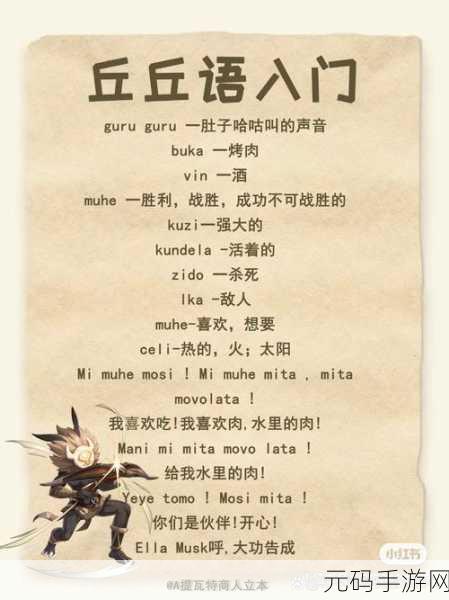 丘丘语入门
guru guru 一肚子哈咕叫的声音
buka 一烤肉
vin 一酒
muhe 一胜利，战胜，成功不可战胜的
kuzi一强大的
kundela -活着的
zido 一杀死
Ika -敌人
muhe-喜欢，想要
celi-热的，火；太阳
Mi muhe mosi ! Mi muhe mita , mita
movolata !
我喜欢吃!我喜欢肉,水里的肉!
Mani mi mita movo lata !
给我水里的肉!
Yeye tomo ! Mosi mita !
你们是伙伴!开心!
Ella Musk呼,大功告成
小红书
@A提瓦特商人立本
元码手游网